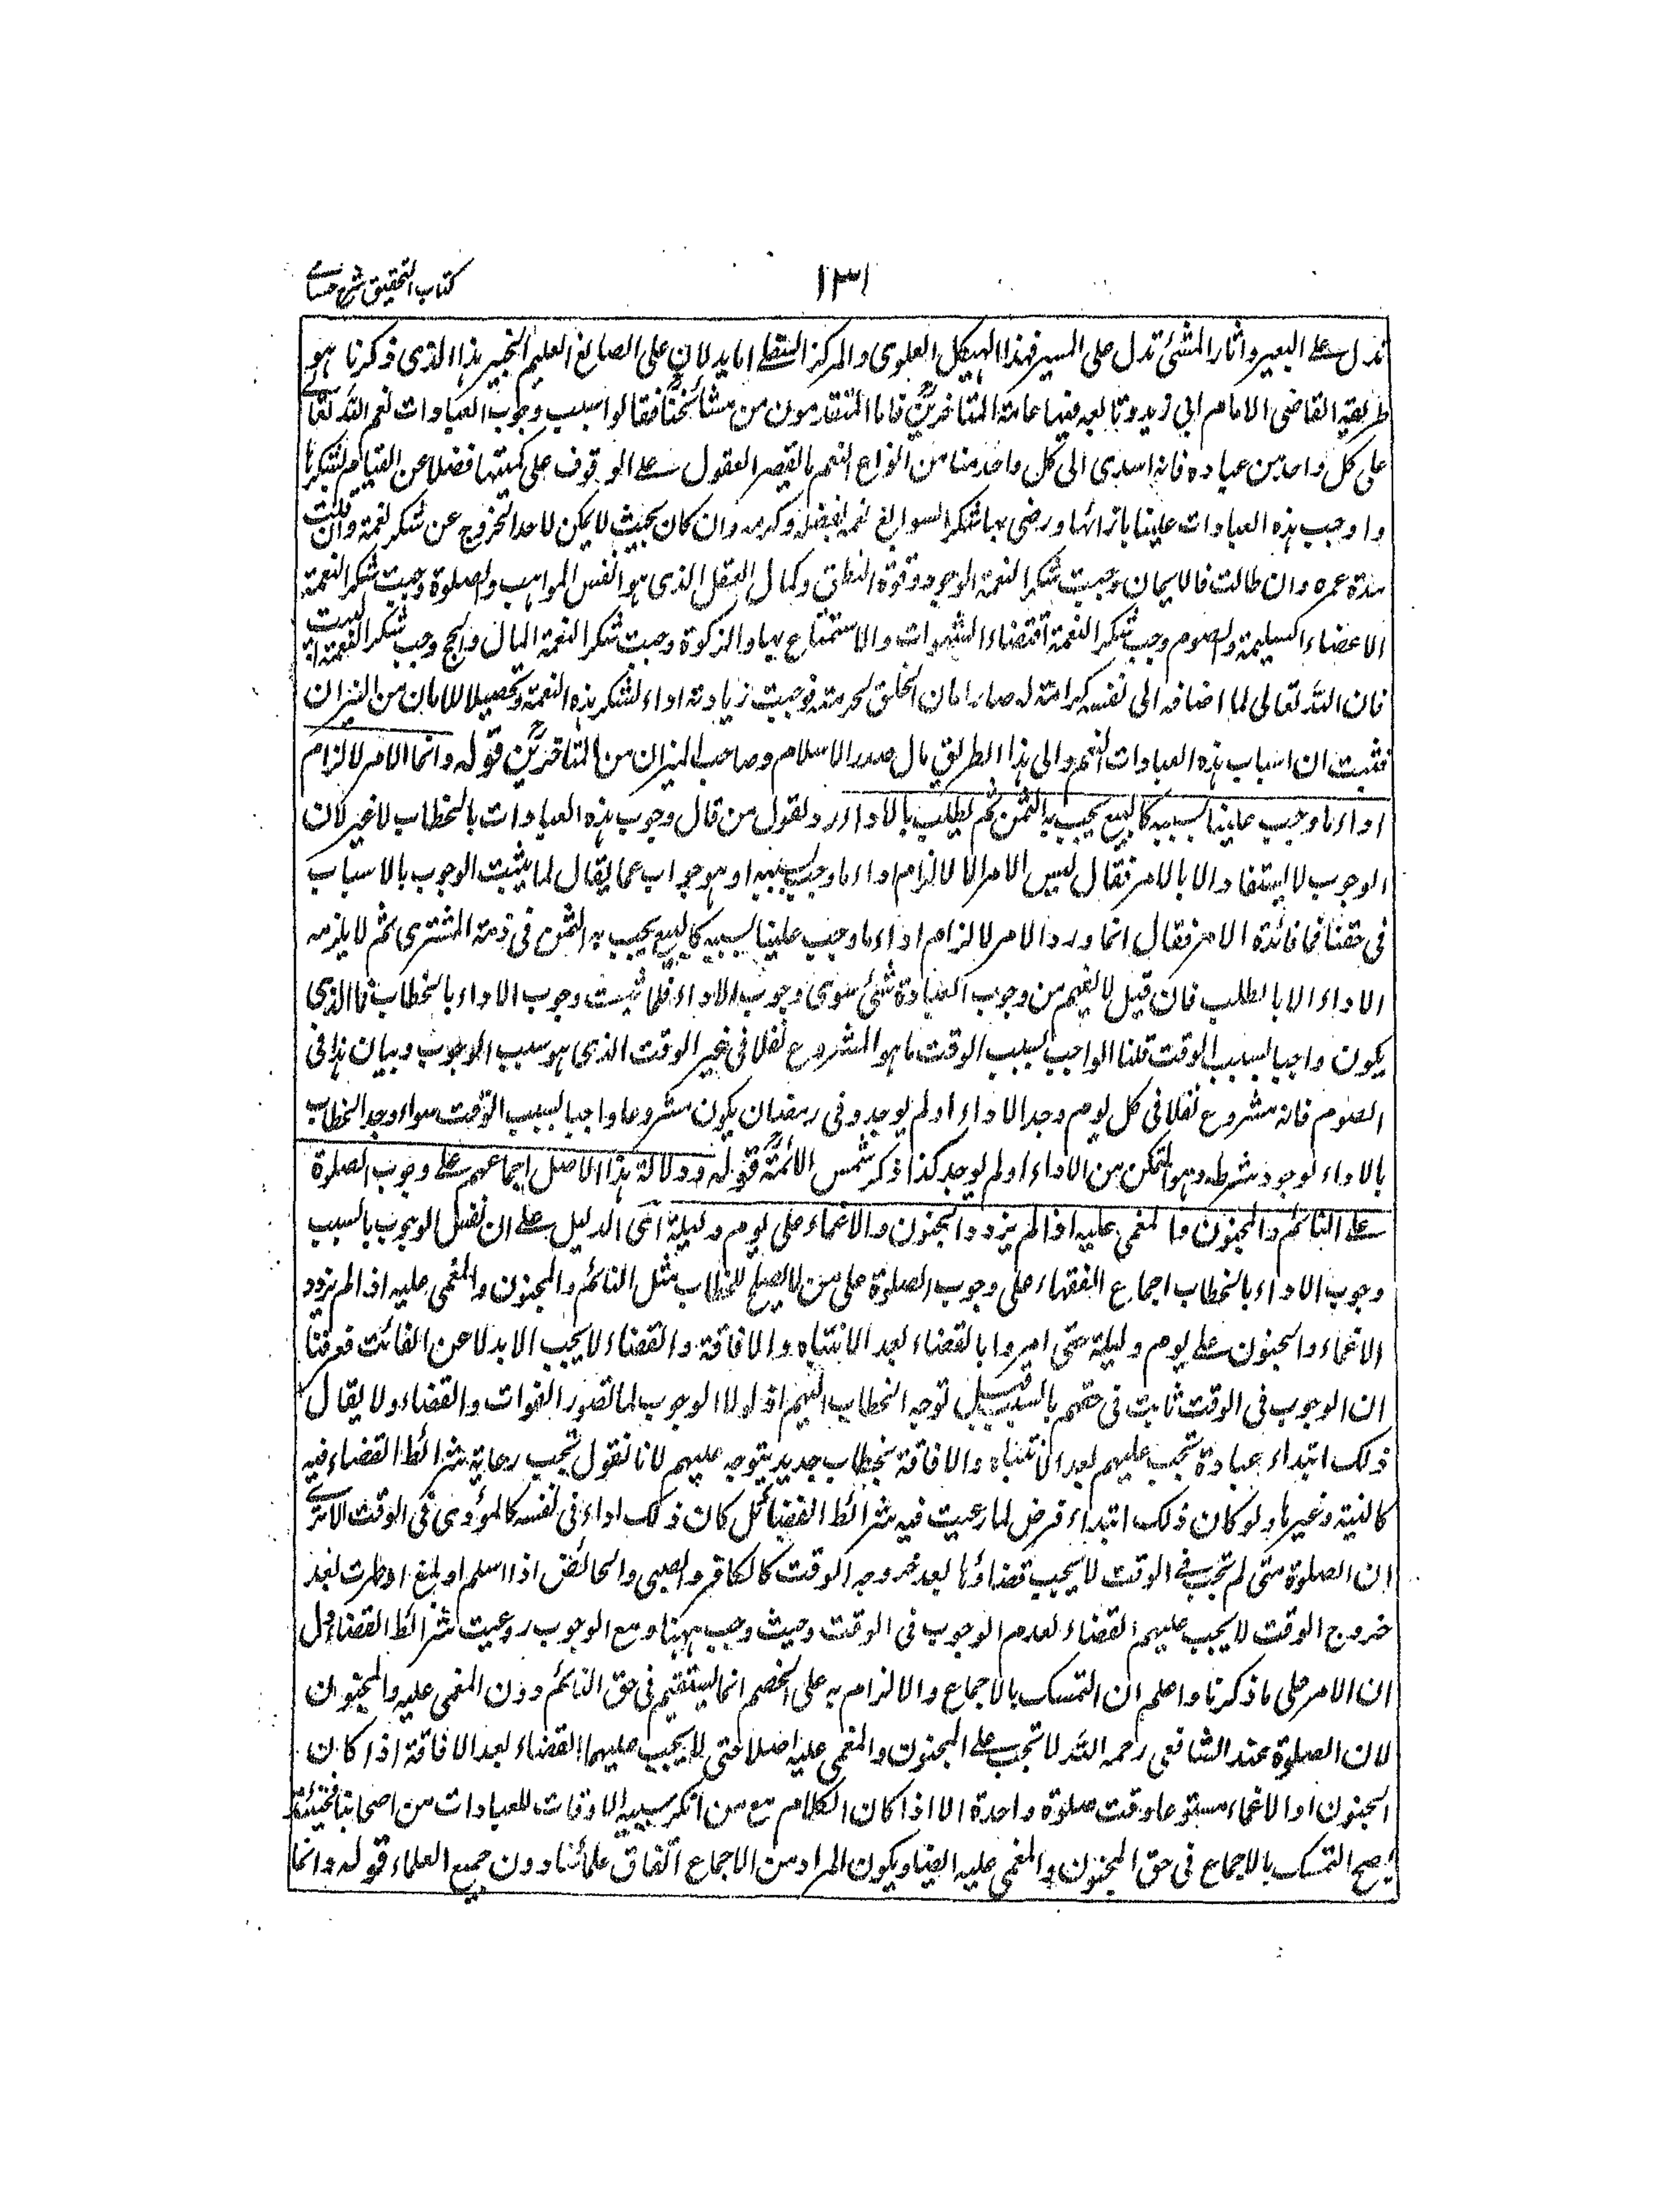 كتاب التحقيق شرح حسامے
١٣١
تدل علے البعير واثار المشئ تدل على المسير فهذا الهيكل العلوى والمركز السفلے اما يدلان على الصانع العليم الخبير هذا الذى ذكرنا هو
طريقة القاضى الامام ابى زيد وتابعه فيها عامة المتاخرين فاما المتقدمون من مشائخنا فقالوا سبب وجوب العبادات نعم الله تعالے
على كل واحد من عباده فانه اسدى الى كل واحد منا من انواع النعم ما يقصر العقول علے الوقوف على كميتها فضلا عن القيام بشكرها
واوجب هذه العبادات علينا بازائها ورضى بها شكرا لسوابغ نعمه بفضله وكرمه وان كان بحيث لا يمكن لاحد الخروج عن شكر نعمة وان قلت
مدة عمره وان طالت فالايمان وجبت شكرا لنعمة الوجود وقوة النطق وكمال العقل الذى هو انفس المواهب والصلوة وجبت شكرا لنعمة
الاعضاء السليمة والصوم وجب شكرا لنعمة اقتضاء الشهوات والاستمتاع بها والزكوة وجبت شكرا لنعمة المال والحج وجب شكرا لنعمة البيت
فان الله تعالى لما اضافه الى نفسه كرامة له صار امان الخلق لحرمته فوجبت زيارته اداء لشكر هذه النعمة وتحصيلا للامان من النيران
فثبت ان اسباب هذه العبادات النعم والى هذا الطريق مال صدر الاسلام وصاحب الميزان من المتاخرين قوله وانما الامر لالزام
اداء ما وجب علينا بسببه كالبيع يجب به الثمن ثم يطلب بالاداء رد لقول من قال وجوب هذه العبادات بالخطاب لا غير لان
الوجوب لا يستفاد الا بالامر فقال ليس الامر الا لالزام اداء ما وجب بسببه او هو جواب عما يقال لما يثبت الوجوب بالاسباب
فى حقنا فما فائدة الامر فقال انما ورد الامر لالزام اداء ما وجب علينا بسببه كالبيع يجب به الثمن فى ذمة المشترى ثم لا يلزمه
الاداء الا بالطلب فان قيل لا يفهم من وجوب العبادة شئ سوى وجوب الاداء فلما ثبت وجوب الاداء بالخطاب فما الذى
يكون واجبا بسبب الوقت قلنا الواجب بسبب الوقت ما هو المشروع نفلا فى غير الوقت الذى هو سبب الوجوب وبيان هذا فى
الصوم فانه مشروع نفلا فى كل يوم وجد الاداء او لم يوجد وفى رمضان يكون مشروعا واجبا بسبب الوقت سواء وجد الخطاب
بالاداء لوجود شرطه وهو التمكن من الاداء او لم يوجد كذا ذكر شمس الائمة قوله ودلالة هذا الاصل اجماعهم علے وجوب الصلوة
علے النائم والمجنون والمغمى عليه اذا لم يزدد الجنون والاغماء على يوم وليلة اى الدليل علے ان نفس الوجوب بالسبب
وجوب الاداء بالخطاب اجماع الفقهاء على وجوب الصلوة على من لا يصلح للخطاب مثل النائم والمجنون والمغمى عليه اذا لم يزدد
الاغماء والجنون علے يوم وليلة حتى امروا بالقضاء بعد الانتباه والافاقة والقضاء لا يجب الا بدلا عن الفائت فعرفنا
ان الوجوب فى الوقت ثابت فى حقهم بالسبب قبل توجه الخطاب اليهم اذ لولا الوجوب لما تصور الفوات والقضاء ولا يقال
ذلك ابتداء عبادة تجب عليهم بعد الانتباه والافاقة بخطاب جديد يتوجه عليهم لانا نقول تجب رعاية شرائط القضاء فيه
كالنية وغيرها ولو كان ذلك ابتداء فرض لما رعيت فيه شرائط القضاء بل كان ذلك اداء فى نفسه كالمؤدى فى الوقت الا ترى
ان الصلوة متى لم تجب فے الوقت لا يجب قضاؤها بعد خروجه الوقت كالكافر والصبى والحائض اذا اسلم او بلغ او طهرت بعد
خروج الوقت لا يجب عليهم القضاء لعدم الوجوب فى الوقت وحيث وجب ههنا ومع الوجوب روعيت شرائط القضاء دل
ان الامر على ما ذكرنا واعلم ان التمسك بالاجماع والالزام به على الخصم انما يستقيم فى حق النائم دون المغمى عليه والمجنون
لان الصلوة عند الشافعى رحمه الله لا تجب علے المجنون والمغمى عليه اصلا حتى لا يجب عليهما القضاء بعد الافاقة اذا كان
الجنون او الاغماء مستوعبا وقت صلوة واحدة الا اذا كان الكلام مع من انكر سببية الاوقات للعبادات من اصحابنا فحينئذ
يصح التمسك بالاجماع فى حق المجنون والمغمى عليه ايضا ويكون المراد من الاجماع اتفاق علمائنا دون جميع العلماء قوله وانما